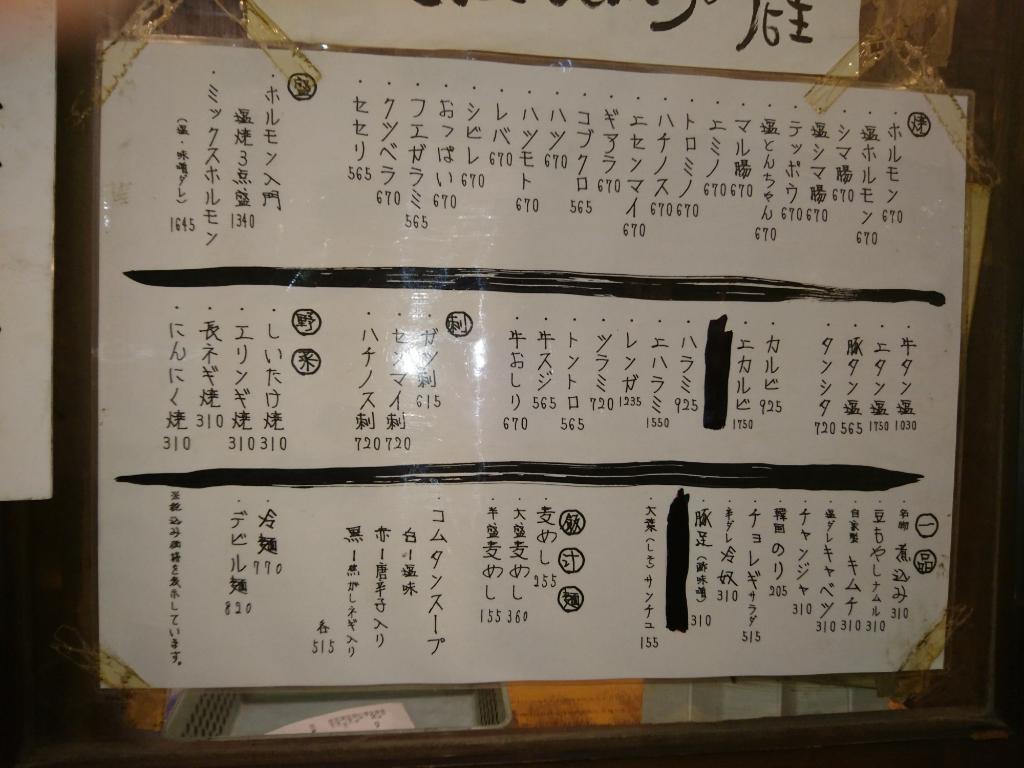 焼
・ホルモン 670
・塩ホルモン 670
・シマ腸 670
・塩シマ腸 670
・テッポウ 670
・塩とんちゃん 670
・マル腸 670
・エミノ 670
・トロミノ 670
・ハチノス 670
・エセンマイ 670
・ギアラ 670
・コブクロ 565
・ハツ 670
・ハツモト 670
・レバ 670
・シビレ 670
・おっぱい 670
・フエガラミ 565
・クツベラ 670
・セセリ 565
盛
・ホルモン入門
塩焼3点盛 1340
・ミックスホルモン
(塩・味噌ダレ) 1645
・牛タン塩 1030
・エタン塩 1750
・豚タン塩 565
・タンシタ 720
・カルビ 925
・エカルビ 1750
・ハラミ 925
・エハラミ 1550
・レンガ 1235
・ツラミ 720
・トントロ 565
・牛スジ 565
・牛おしり 670
刺
・ガツ刺 615
・センマイ刺 720
・ハチノス刺 720
野菜
・しいたけ焼 310
・エリンギ焼 310
・長ネギ焼 310
・にんにく焼 310
一品
・名物 煮込み 310
・豆もやしナムル 310
・自家製 キムチ 310
・塩ダレキャベツ 310
・チャンジャ 310
・韓国のり 205
・チョレギサラダ 515
・辛ダレ冷奴 310
・豚足(酢味噌) 310
・大葉(しそ)サンチュ 155
飯汁麺
・麦めし 255
・大盛麦めし 360
・半盛麦めし 155
・コムタンスープ
白ー塩味
赤ー唐辛子入り
黒ー焦がしネギ入り
各515
・冷麺 770
・デビル麺 820
※税込み価格を表示しています。